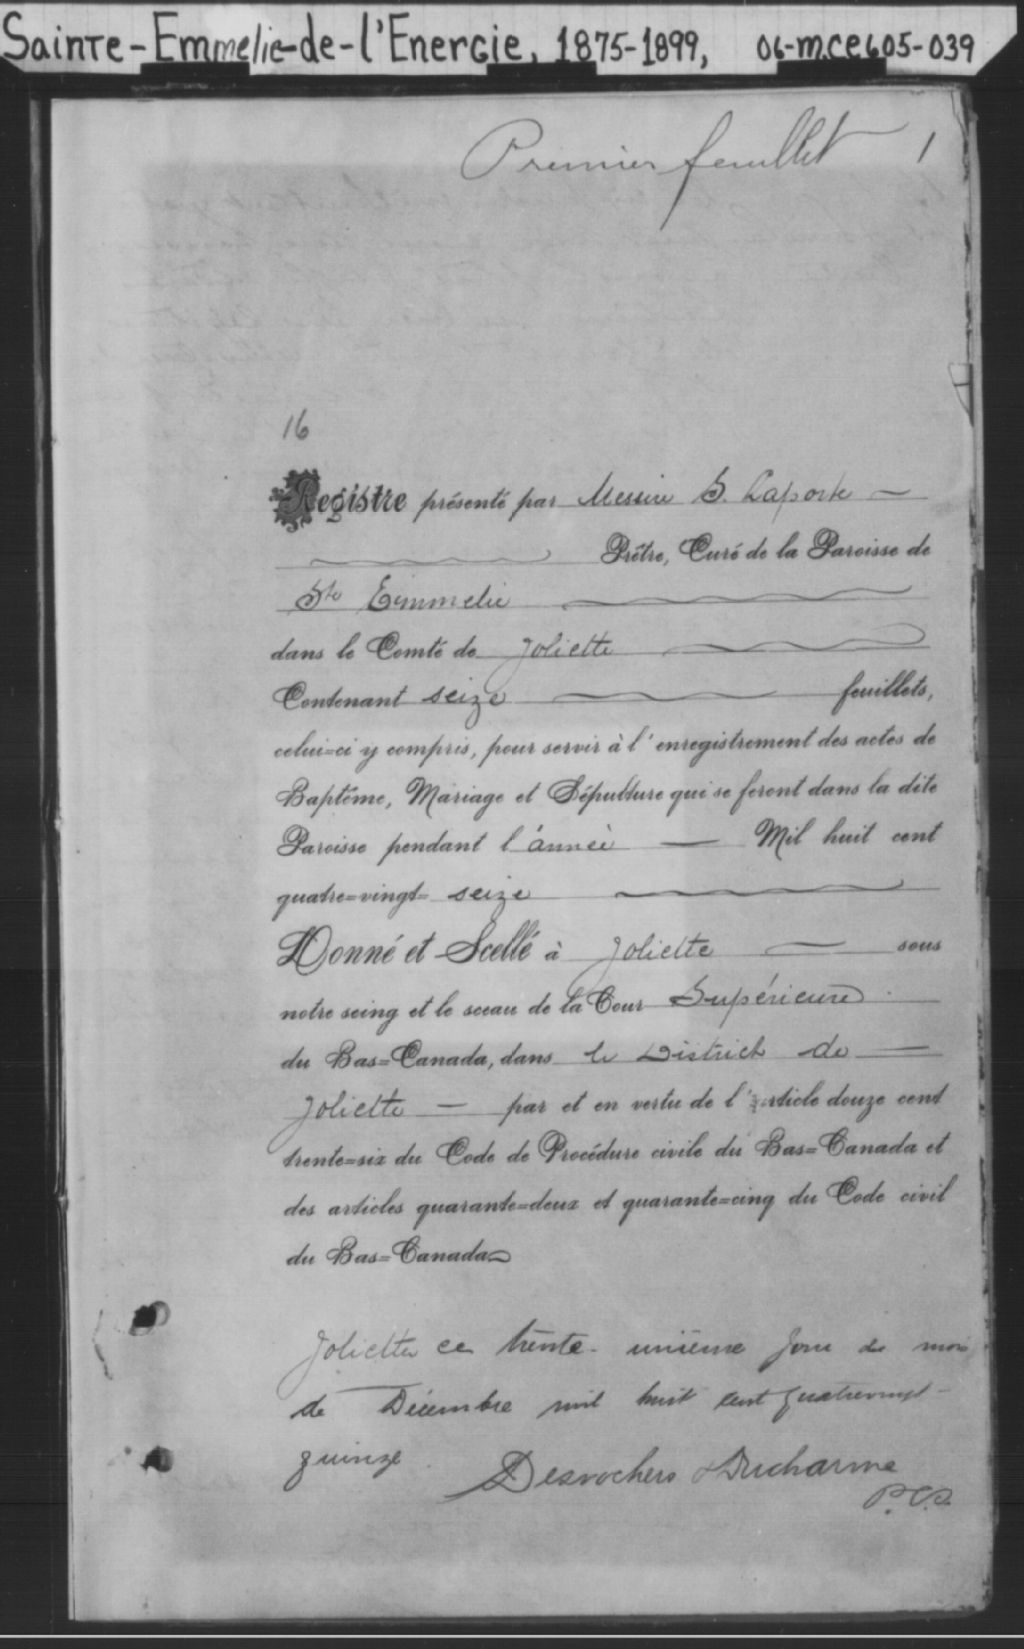 Sainte-Emmelie-de-l'Energie, 1875-1899, 06-M.CE605-039
Premier feuillet 1
16
Registre présenté par Messire S. Laporte
Prêtre, Curé de la Paroisse de
Ste Emmelie
dans le Comté de Joliette
Contenant seize feuillets,
celui=ci y compris, pour servir à l'enregistrement des actes de
Baptême, Mariage et Sépulture qui se feront dans la dite
Paroisse pendant l'année Mil huit cent
quatre=vingt= seize
Donné et Scellé à Joliette sous
notre seing et le sceau de la Cour Supérieure
du Bas=Canada, dans le District de
Joliette par et en vertu de l'article douze cent
trente=six du Code de Procédure civile du Bas=Canada et
des articles quarante=deux et quarante=cinq du Code civil
du Bas=Canada
Joliette ce trente-unième jour de mois
de Décembre mil huit cent quatrevingt-
quinze
Desrochers & Ducharme
P.C.S.